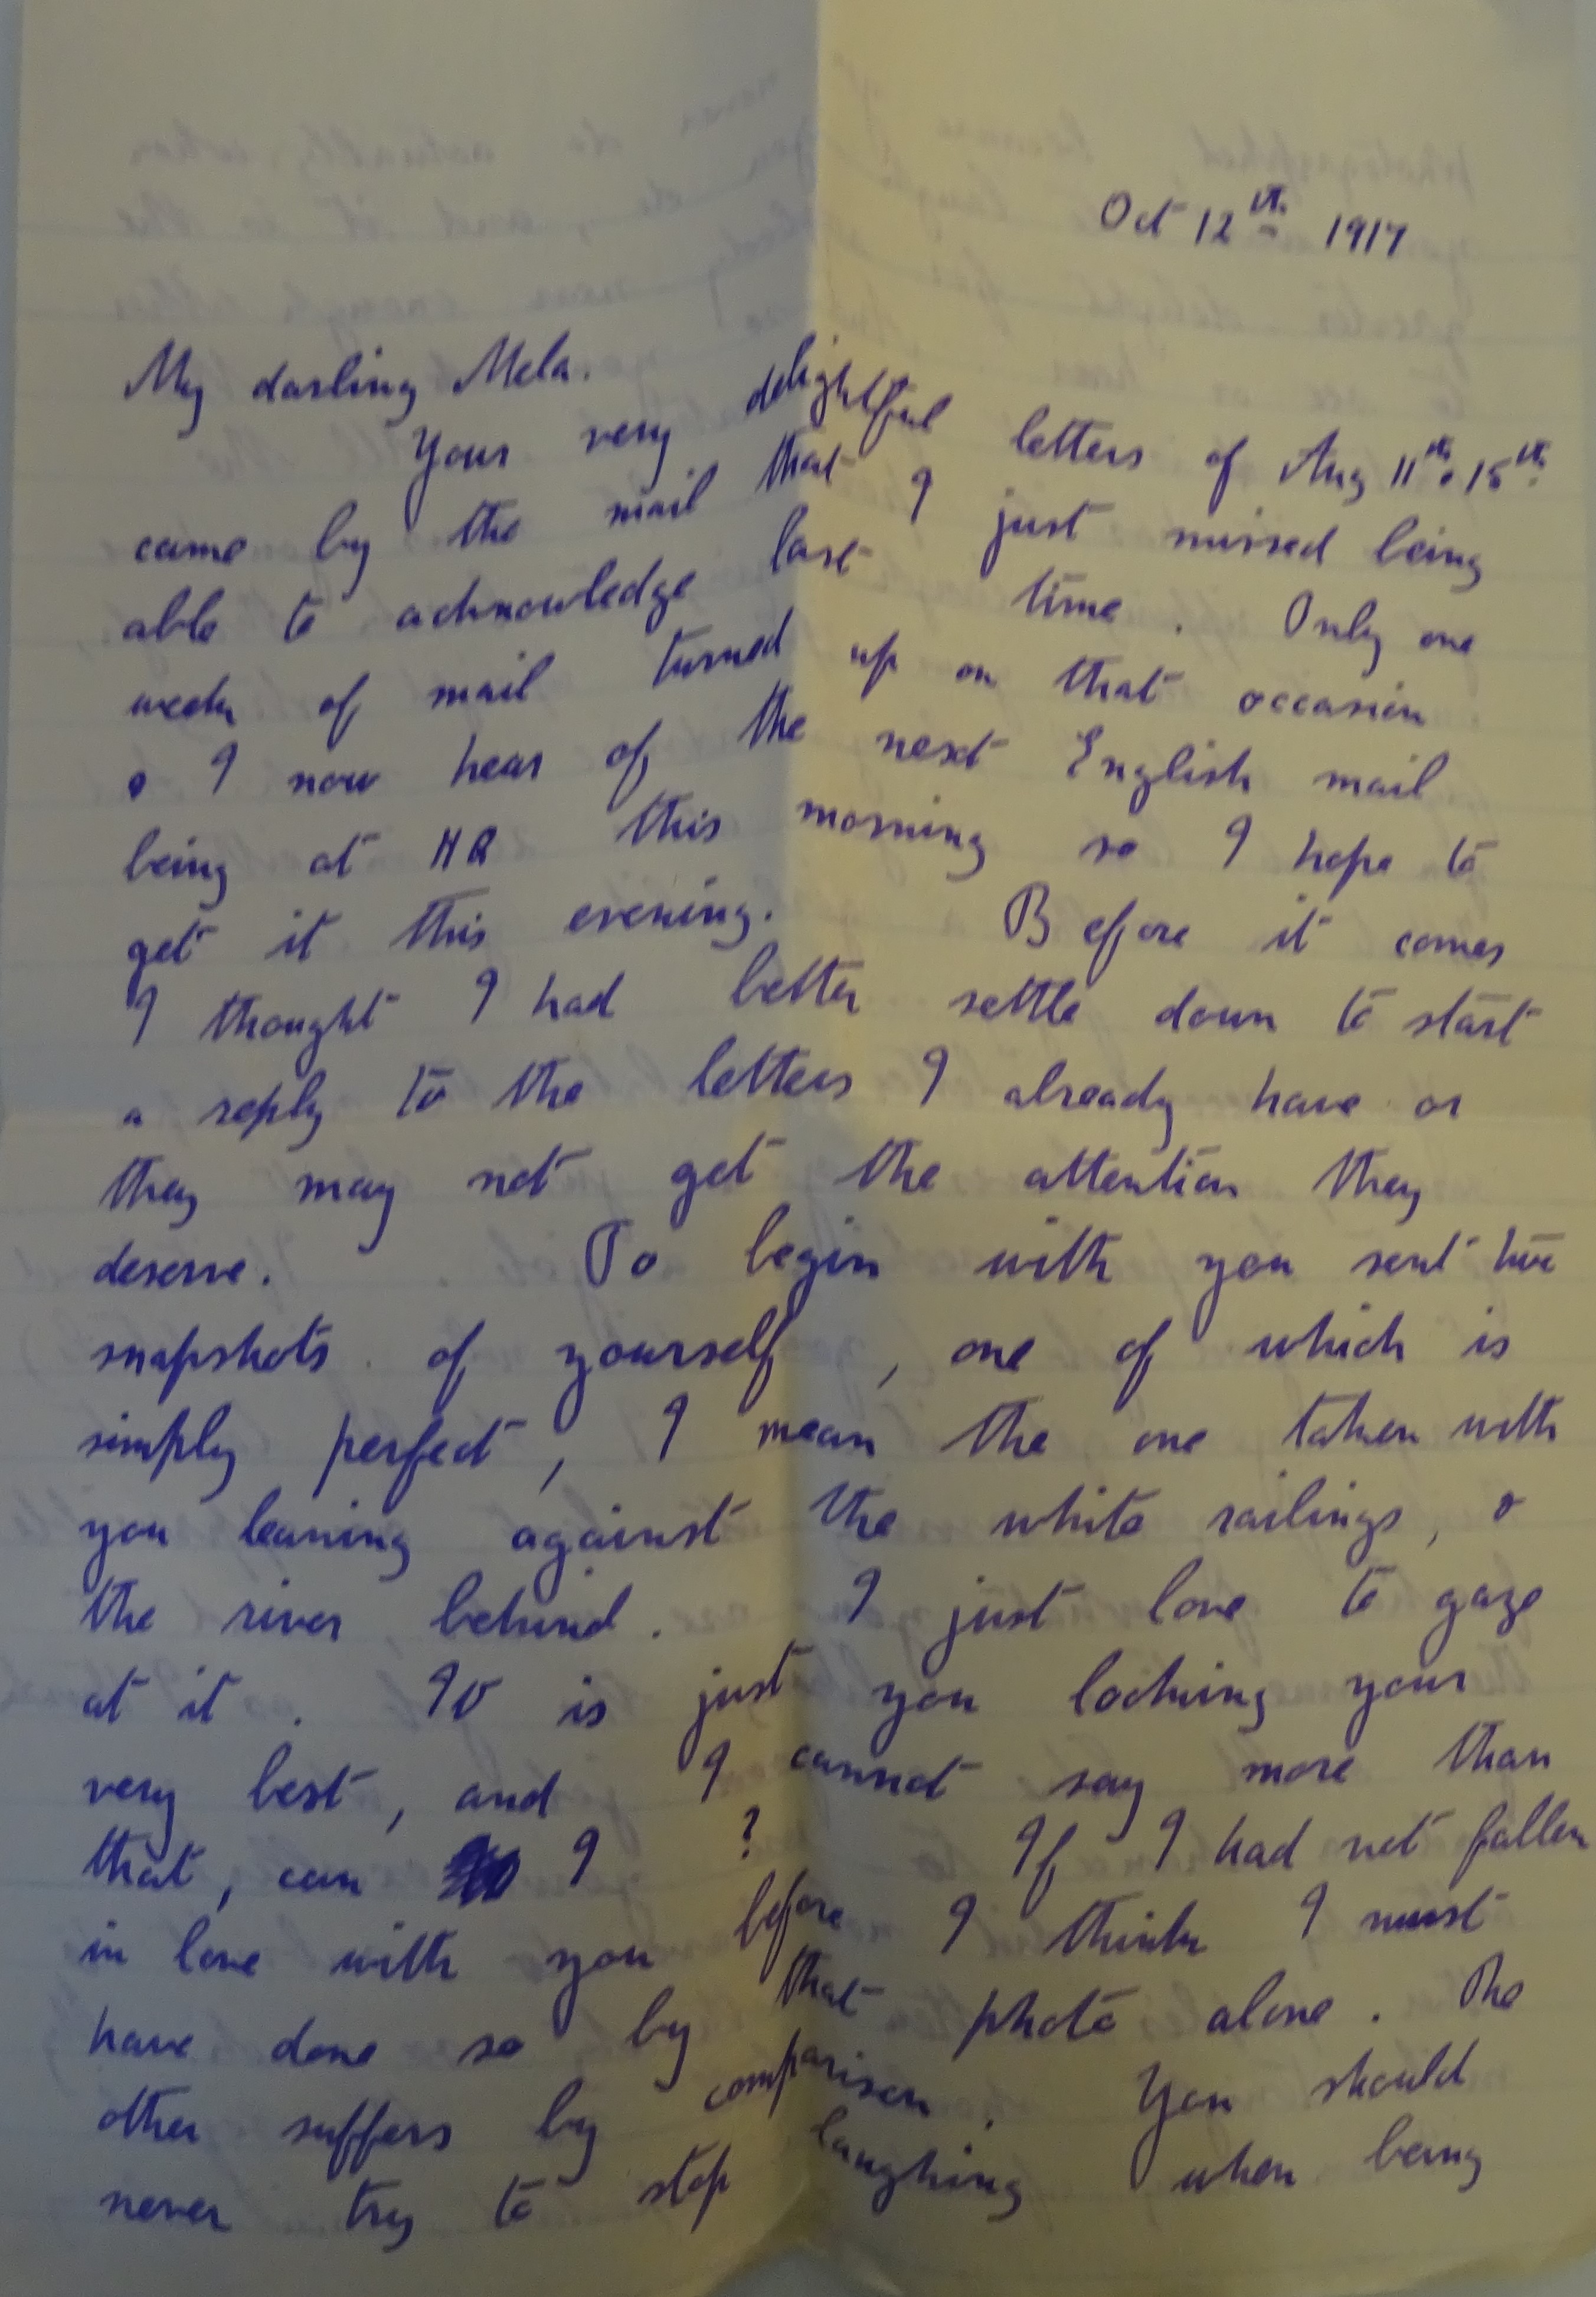 Oct 12th 1917
My darling Mela.
Your very delightful letters of Aug 11th & 15th
came by the mail that I just missed being
able to acknowledge last time. Only one
week of mail turned up on that occasion
& I now hear of the next English mail
being at HQ this morning so I hope to
get it this evening. Before it comes
I thought I had better settle down to start
a reply to the letters I already have or
they may not get the attention they
deserve. To begin with you sent two
snapshots of yourself, one of which is
simply perfect, I mean the one taken with
you leaning against the white railings, &
the river behind. I just love to gaze
at it. It is just you looking your
very best, and I cannot say more than
that, can I? If I had not fallen
in love with you before I think I must
have done so by that photo alone. The
other suffers by comparison. You should
never try to stop laughing when being